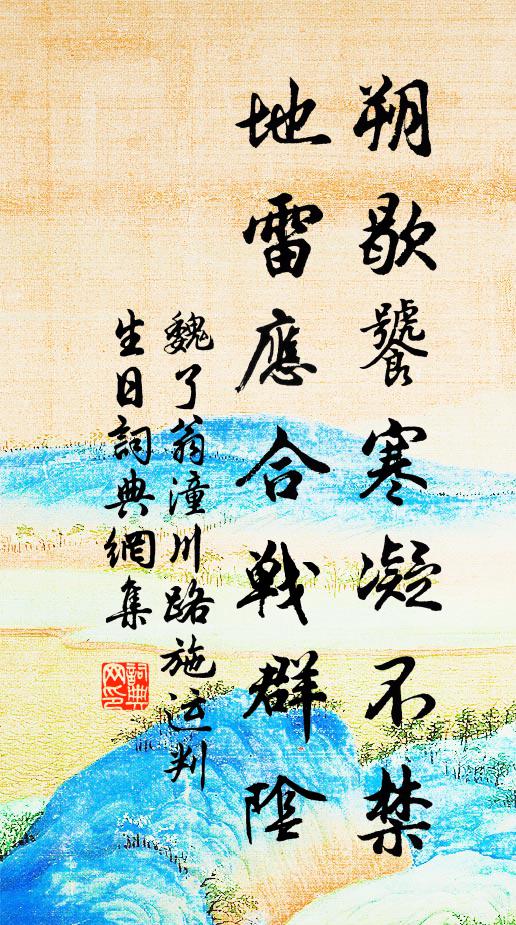 朔歇饕寒凝不禁
地雷應合戰群陰
魏了翁潼川路施运判
生日詞典網集
詞典网印